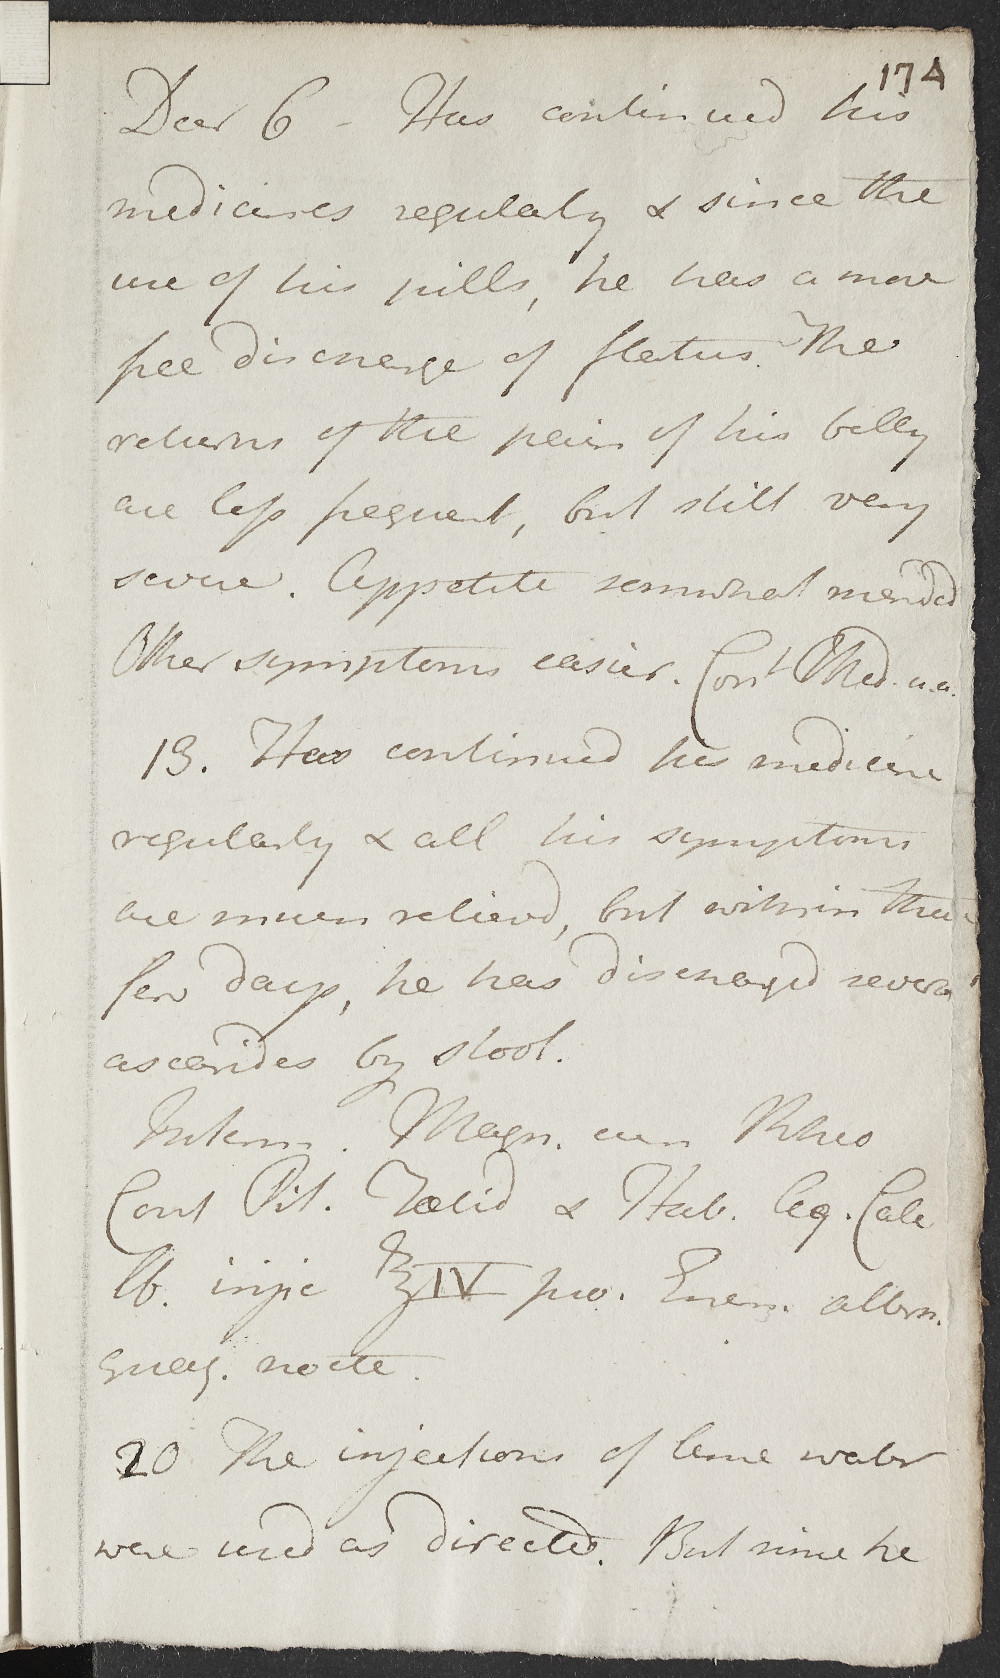 174
Decr 6 - Has continued his
medicines regularly & since the
use of his pills, he has a more
free discharge of flatus. The
returns of the pain of his belly
are less frequent, but still very
severe. Appetite somwhat mended
Other symptoms easier. Cont Med. u.a.
13. Has continued his medicine
regularly & all his symptoms
are much relievd, but within these
few days, he has dischargd several
ascarides by stool.
Interm. Magn. cum Rheo
Cont Pil. Foetid & Hab. Aq. Calc
lb. injic ℥IV pro. Enem. altern.
quaq. nocte.
20 The injections of lime water
were used as directed. But since he